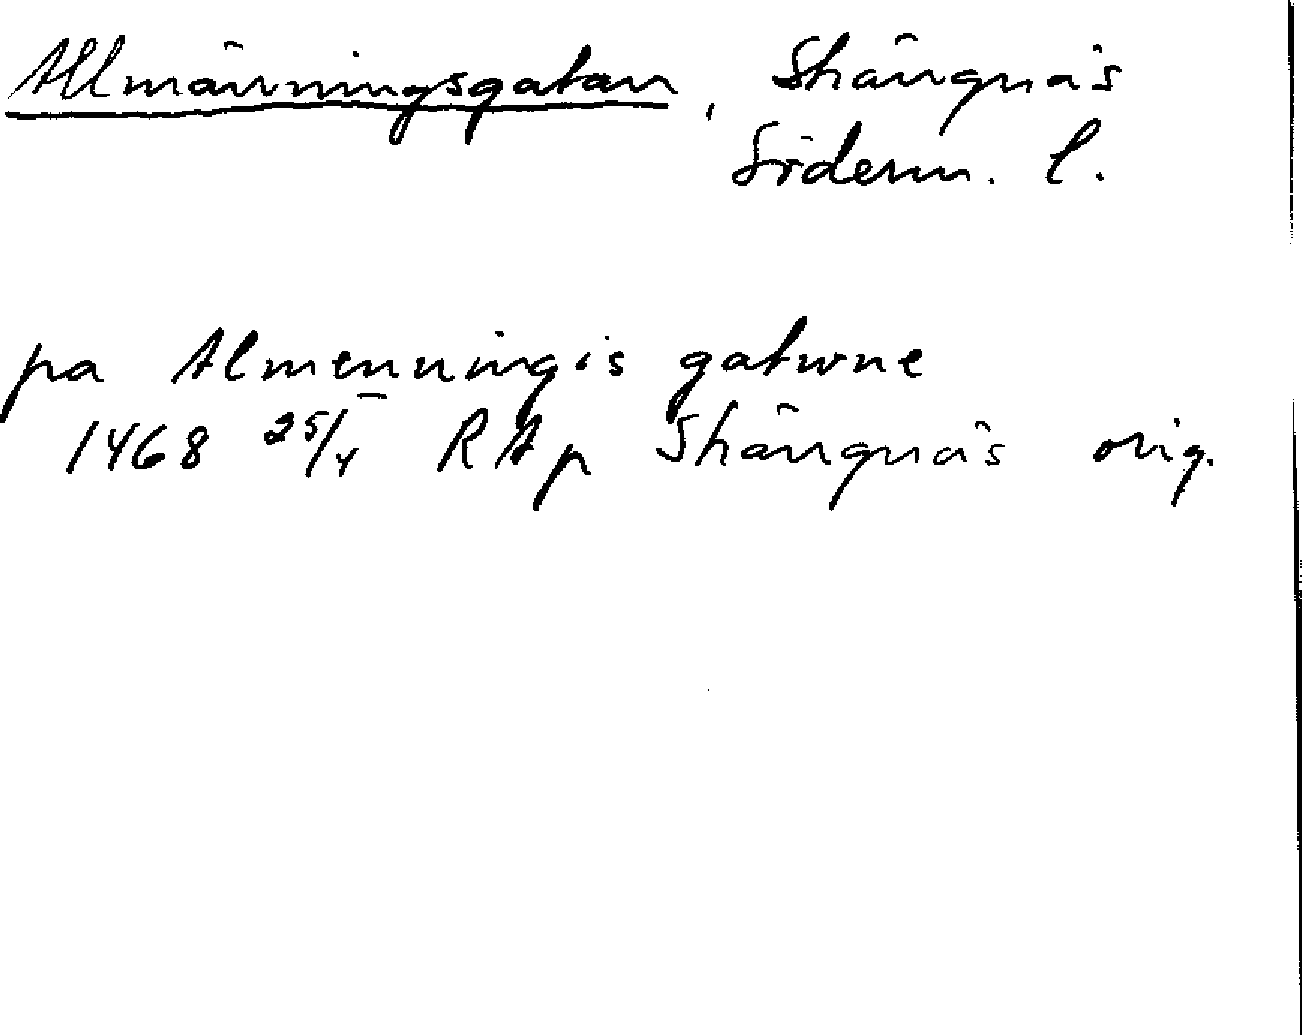 Allmänningsgatan, Strängnäs
Söderm. l.
pa Almenningis gatwne
1468 25/4 RAp Strängnäs orig.